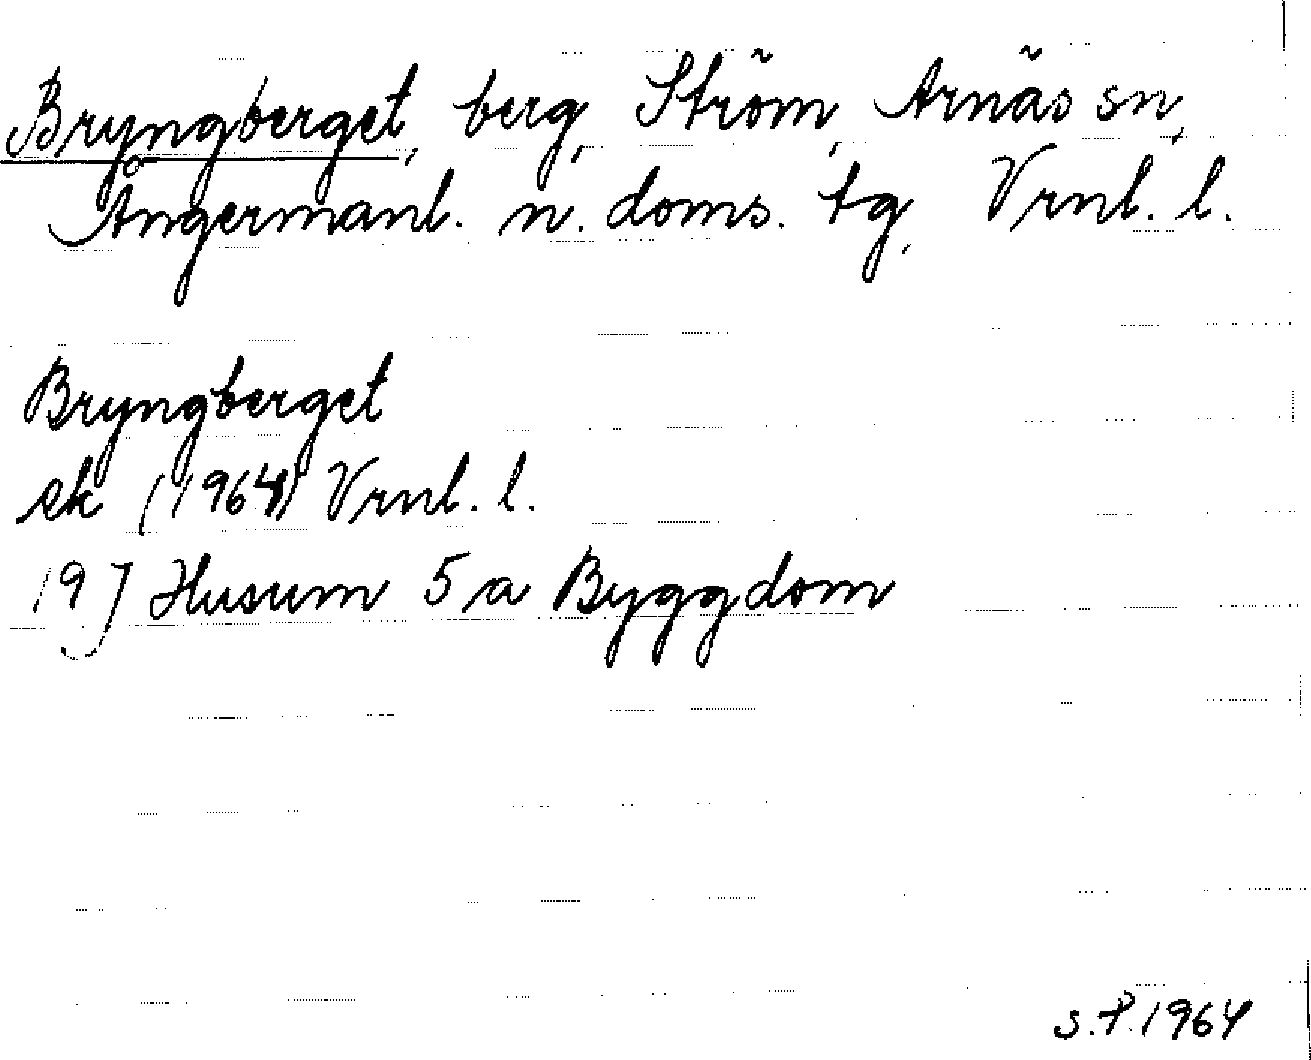 Bryngberget, berg, Ström, Arnäs sn,
Ångermanl. n. doms. tg, Vrnl. l.
Bryngberget
ek (1964) Vrnl. l.
19 J Husum 5 a Byggdom
S.P. 1964